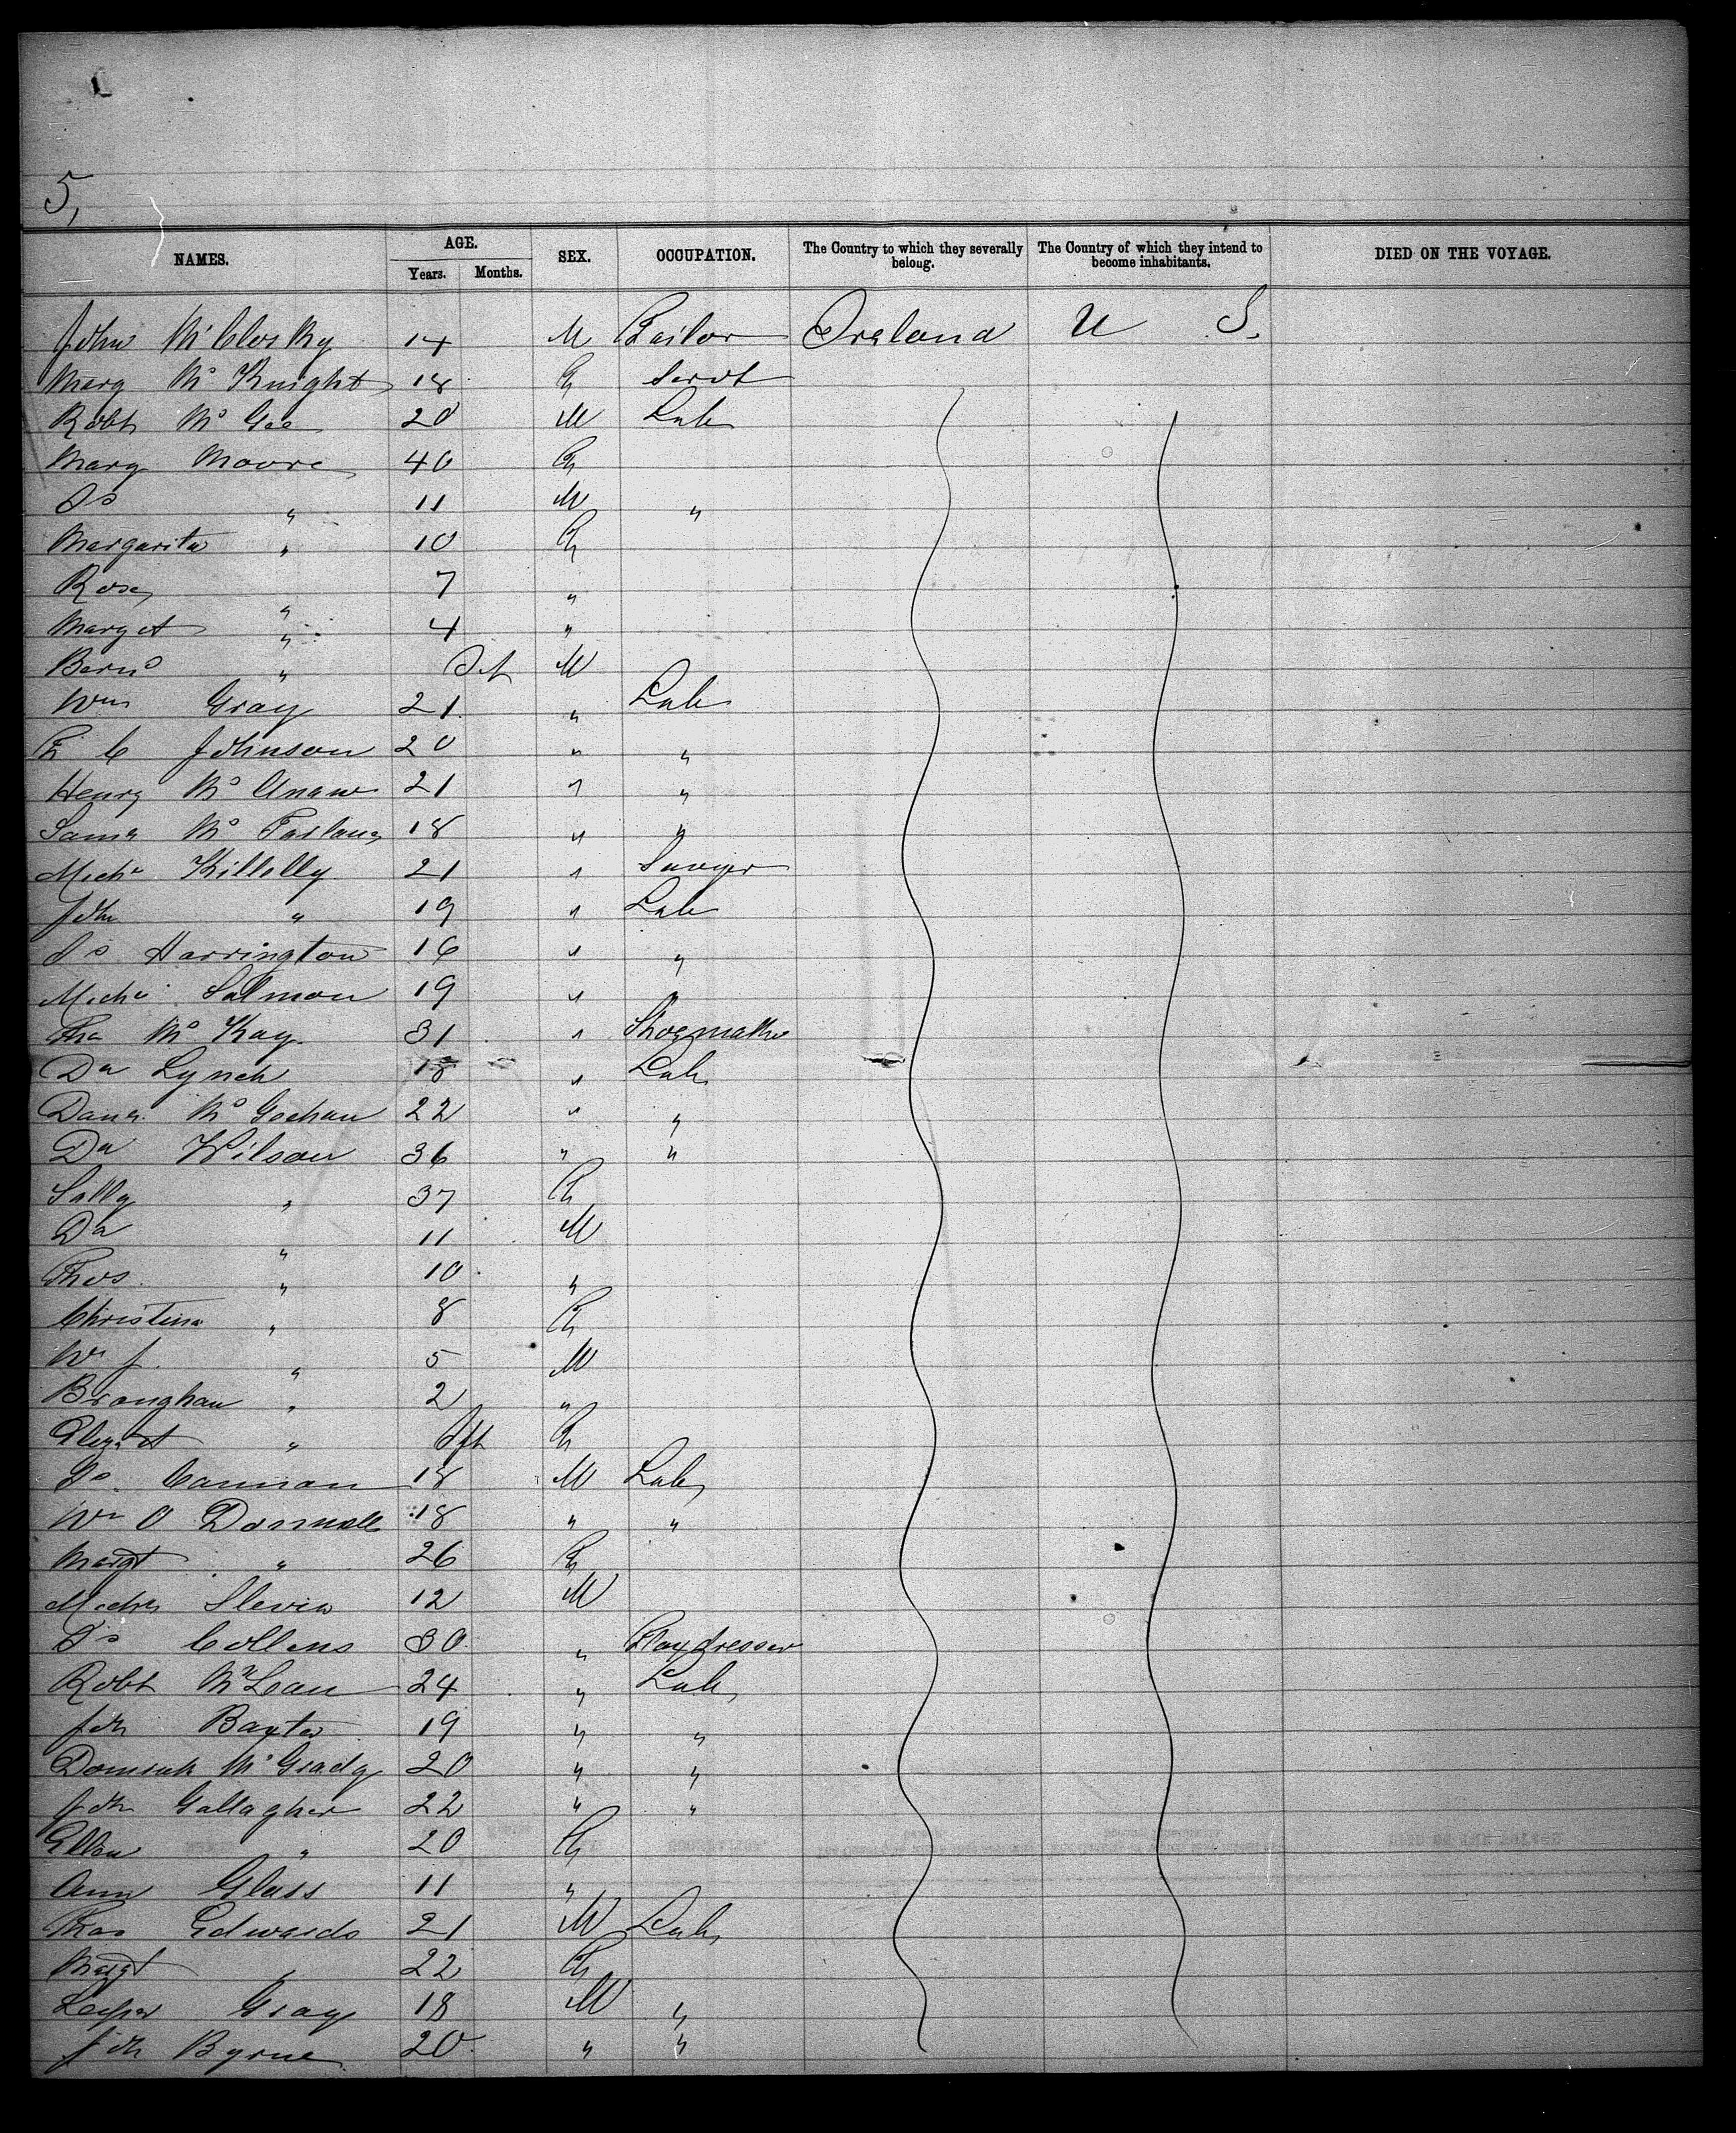 5,
NAMES. AGE. SEX. OCCUPATION. The Country to which they severally belong. The Country of which they intend to become inhabitants. DIED ON THE VOYAGE.
Years. Months.
John McClosky 14 M Tailor Ireland U S.
Marg McKnight 18 F Servt
Robt McGee 20 M Lab
Marg Moore 40 F
Js " 11 M "
Margarita " 10 F
Rose " 7 "
Margt " 4 "
Bernd " Inft M
Wm Gray 21 " Lab
F C Johnson 20 " "
Henry Mc 21 " "
Saml McFarlane 18 " "
Michl Killelly 21 " Sawyer
Jhn " 19 " Lab
Js Harrington 16 " "
Michl Salmon 19 "
Mc Kay 31 " Shoemaker
Da Lynch 18 " Lab
Danl McGoehan 22 " "
Da Wilson 36 " "
Sally " 37 F
Da " 11 M
Thos " 10 "
Christina " 8 F
Wm J. " 5 M
Branghan " 2 "
Elizabt " Inft F
Js. Cannan 18 M Lab
Wm O Donnell 18 " "
Margt " 26 F
Michl Slevin 12 M
Js Collens 30 " Flaxdresser
Robt McLean 24 " Lab
Jhn Baxter 19 " "
Domink McGrady 20 " "
Jhn Gallagher 22 " "
Ellen " 20 F
Ann Glass 11 "
Thos Edwards 21 M Lab
Margt " 22 F
Gray 18 M "
Jhn Byrne 20 " "